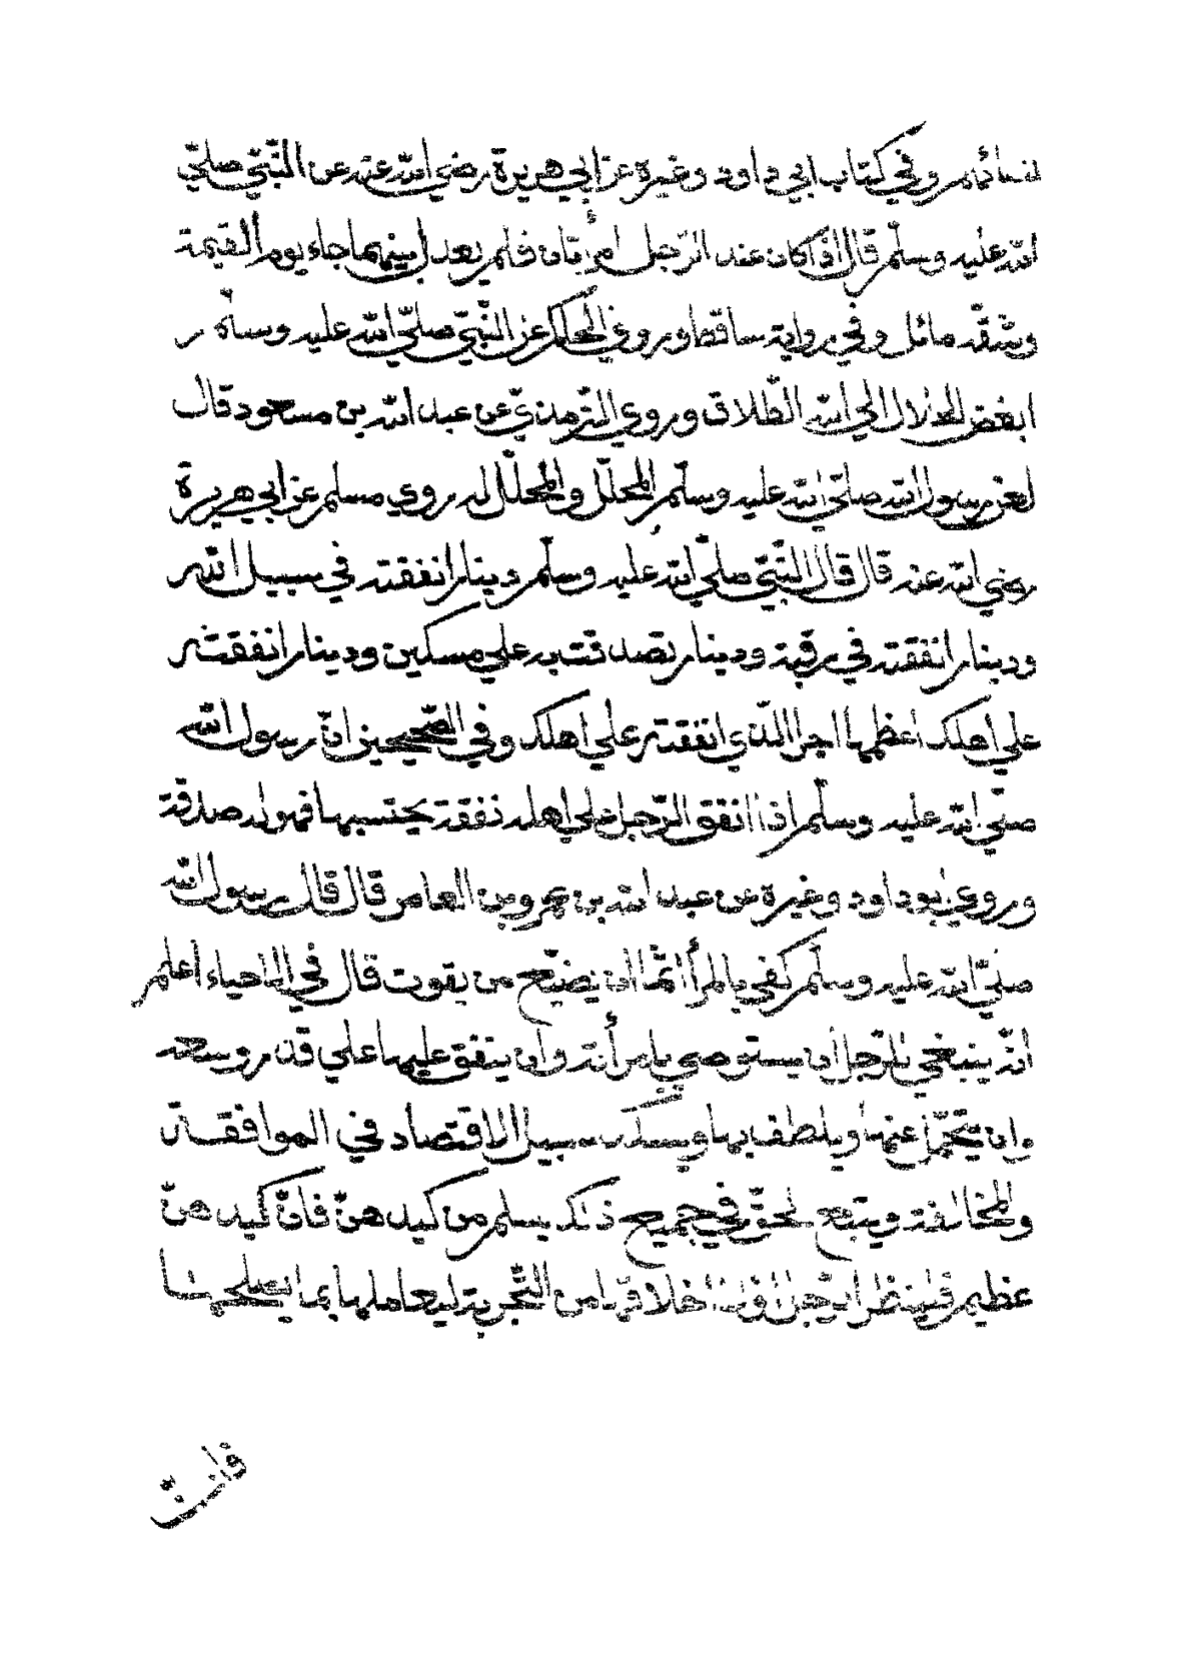 لنسائهم وفي كتاب ابي داود وغيره عن ابي هريرة رضي الله عنه عن النّبيّ صلّي
الله عليه وسلّم قال اذا كان عند الرّجل امرأتان فلم يعدل بينهما جاء يوم القيمة
وشقّه مائل وفي رواية ساقط وروي الحاكم عن النّبيّ صلّي الله عليه وسلم
ابغض الحلال الي الله الطّلاق وروي التّرمذيّ عن عبد الله بن مسعود قال
لعن رسول الله صلّي الله عليه وسلّم المحلّل والمحلّل له روي مسلم عن ابي هريرة
رضي الله عنه قال قال النّبيّ صلّي الله عليه وسلّم دينار انفقته في سبيل الله
ودينار انفقته في رقبة ودينار تصدقت به علي مسكين ودينار انفقته
علي اهلك اعظمها اجرا الّذي انفقته علي اهلك وفي الصّحيحين انّ رسول الله
صلّي الله عليه وسلّم اذا انفق الرّجل علي اهله نفقة يحتسبها فهو له صدقة
وروي ابو داود وغيره عن عبد الله بن عمرو بن العاص قال قال رسول الله
صلّي الله عليه وسلّم كفي بالمرأ اثما ان يضيّع من يقوت قال في الاحياء اعلم
انّه ينبغي للرّجل ان يستوصي بامرأته وان ينفق عليها علي قدر وسعه
وان يتحمّل عنها ويلطف بها ويسلك سبيل الاقتصاد في الموافقة
والمخالفة ويتبع الحقّ في جميع ذلك يسلم من كيدهنّ فانّ كيدهنّ
عظيم فلينظر الرّجل اوّلا اخلاقها من التّجربة ليعاملها بما يصلحها
فانّ